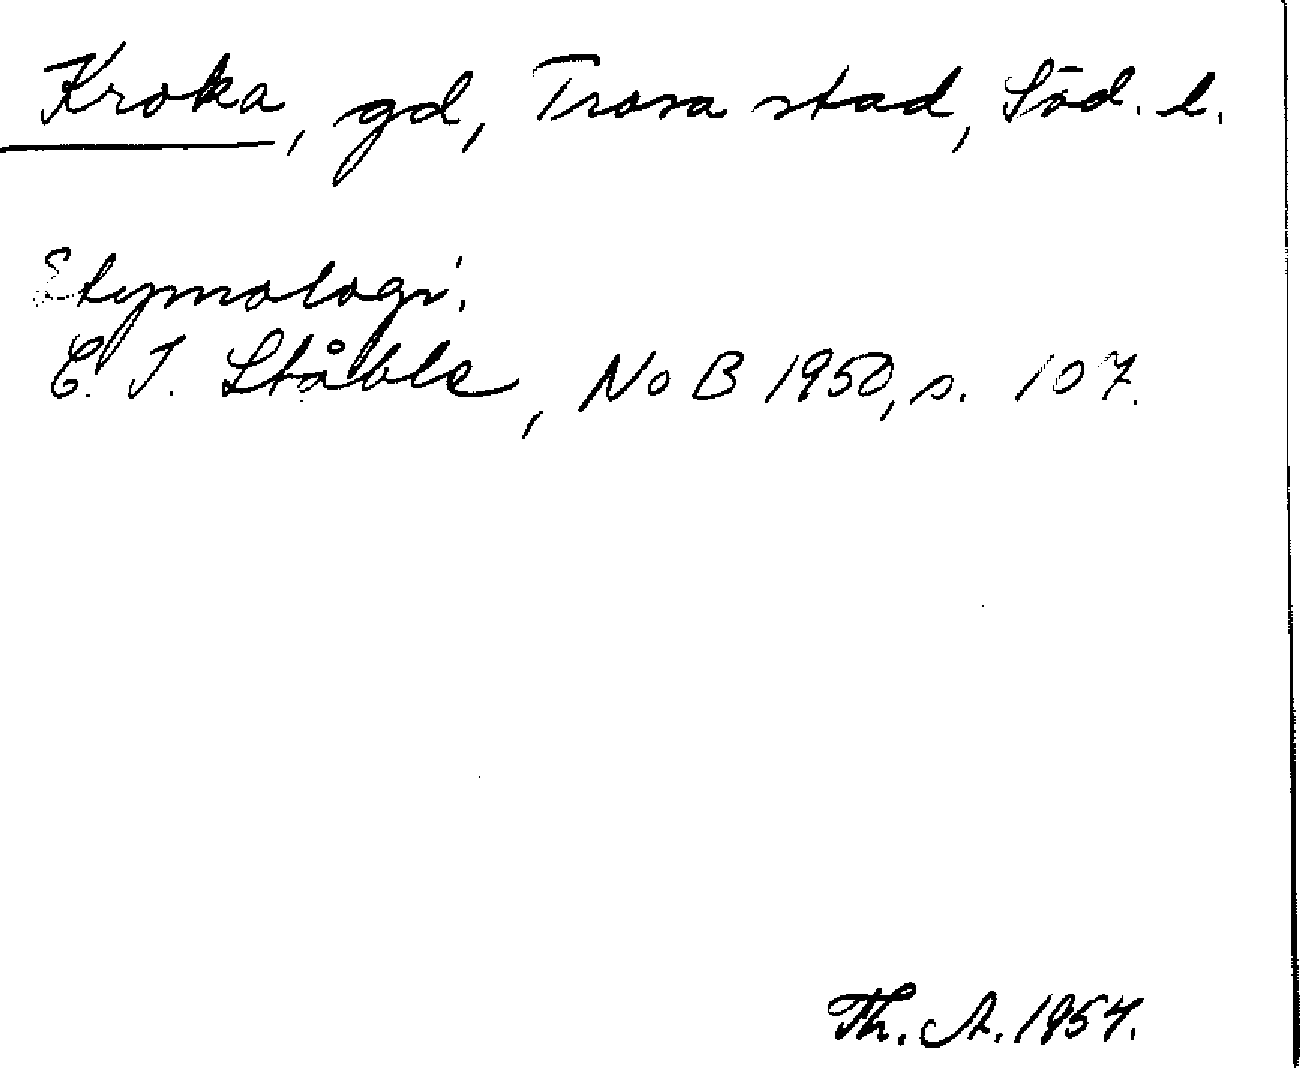 Kroka, gd, Trosa stad, Söd. l.
Etymologi.
C. I. Ståhle, NoB 1950, s. 107.
Th. A. 1954.